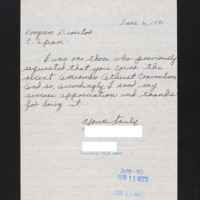 June 6, 1990
Program Director
C-Span:
I was one them who previously
requested that you cover the
recent American Atheist Convention.
And so, accordingly I send my
sincere appreciation and thanks
for doing it.
Yours truly,
JUN 11 RECD